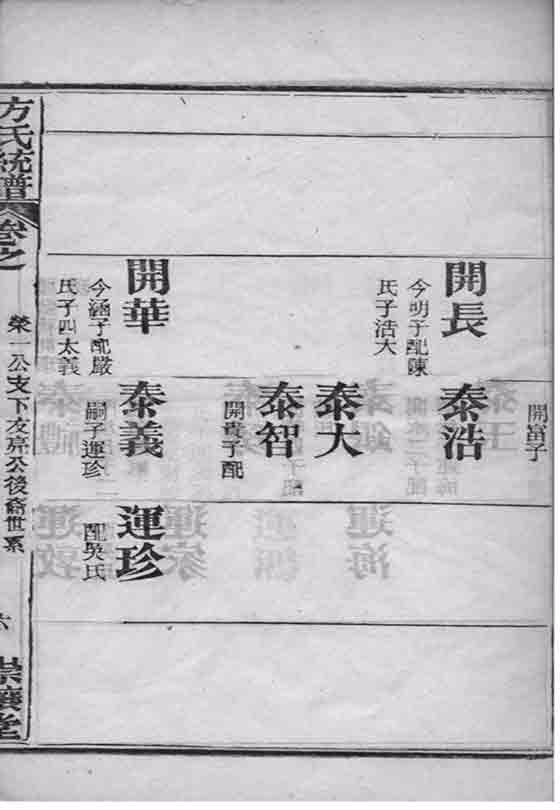 開富子
開長
今明子配陳
氏子浩大
泰浩
泰大
泰智
開貴子配
開華
今涵子配嚴
氏子四太義
泰義
嗣子運珍
運珍
配吳氏
方氏統譜
卷之
榮一公支下友亮公後裔世系
六